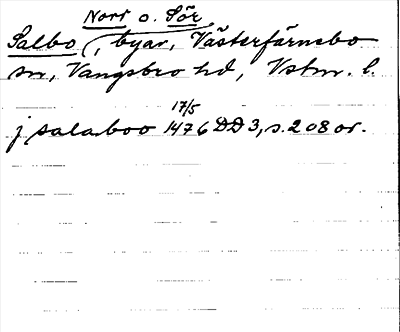 Norr o. Sör
Salbo (, byar, Västerfärnebo
sn, Vangsbro hd, Vstm. l.
17/5
j salaboo 1476 DD 3, s. 208 or.